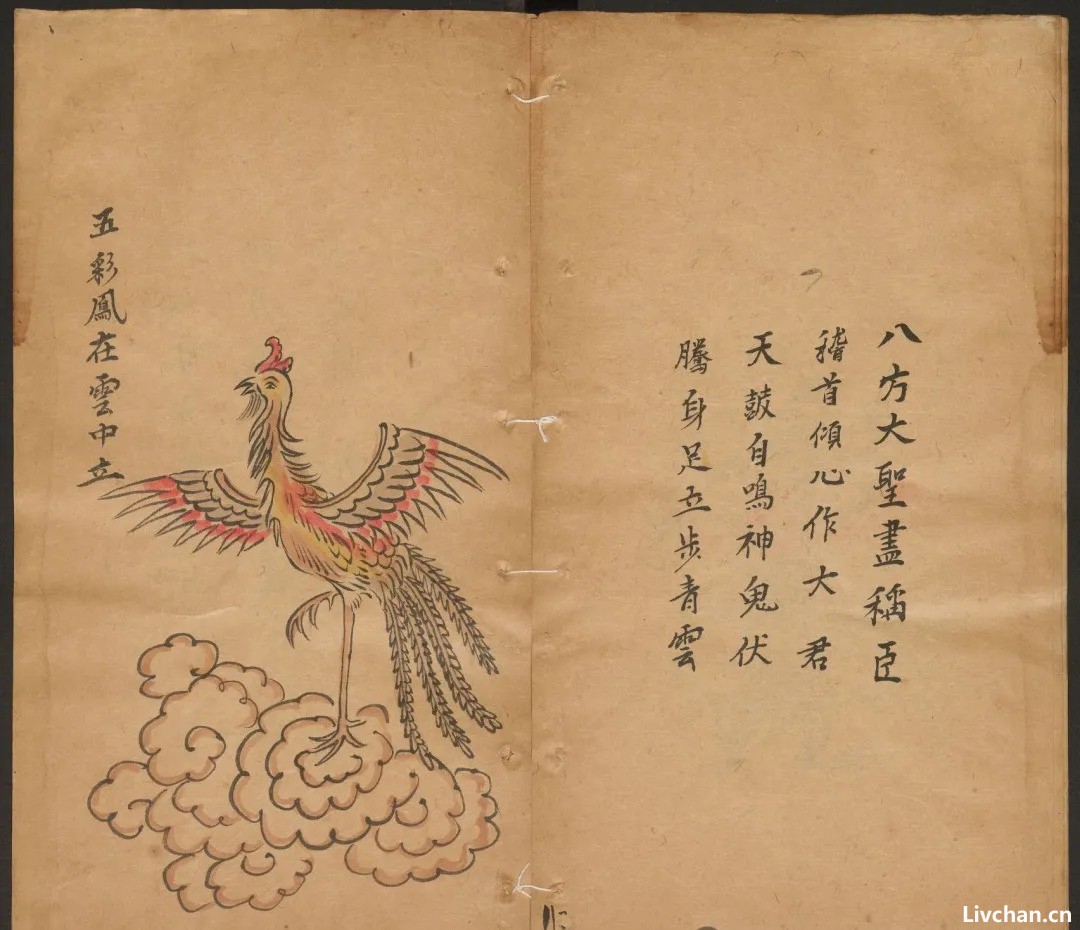 八方大聖盡稱臣
稽首傾心作大君
天鼓自鳴神鬼伏
騰身足立步青雲
五彩鳳在雲中立
Livchan.cn